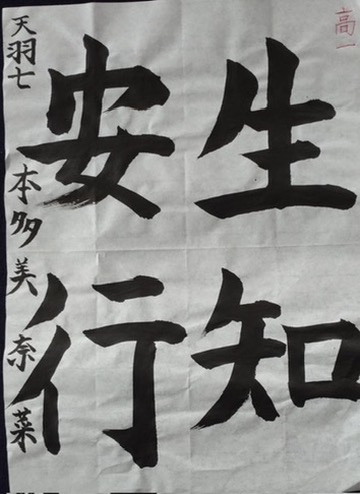 高一
生知
安行
天羽七 本多美奈菜